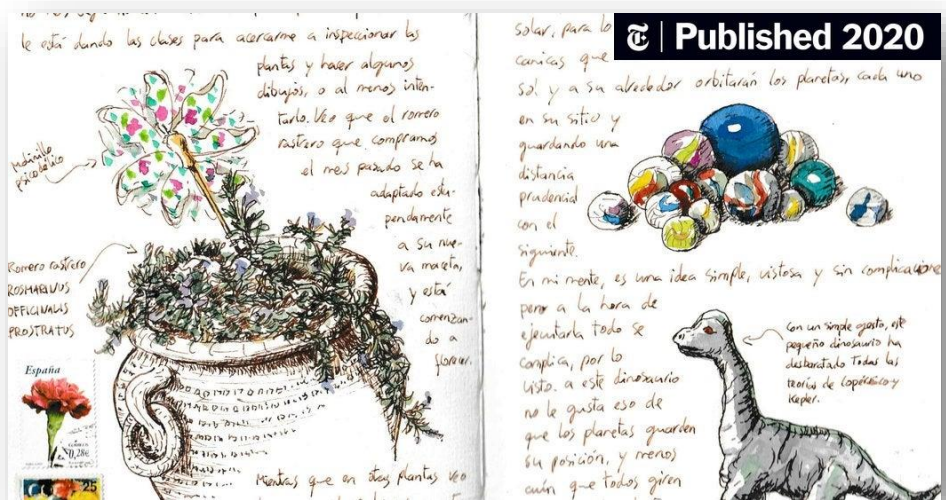 le está dando las clases para acercarme a inspeccionar las
plantas y hacer algunos
dibujos, o al menos inten-
tarlo. Veo que el romero
rastrero que compramos
el mes pasado se ha
adaptado estu-
pendamente
a su nue-
va maceta,
y está
comenzan-
do a
florecer.
Molinillo
psicodélico
Romero rastrero
ROSMARINUS
OFFICINALIS
PROSTRATUS
España
0,28€
25
Mientras que en otras plantas veo
Published 2020
solar, para lo
canicas que
sol y a su alrededor orbitarán los planetas, cada uno
en su sitio y
guardando una
distancia
prudencial
con el
siguiente.
En mi mente, es una idea simple, vistosa y sin complicaciones
pero a la hora de
ejecutarla todo se
complica, por lo
visto. a este dinosaurio
no le gusta eso de
que los planetas guarden
su posición, y menos
aún que todos giren
Con un simple gesto, este
pequeño dinosaurio ha
desbaratado todas las
teorías de Copérnico y
Kepler.